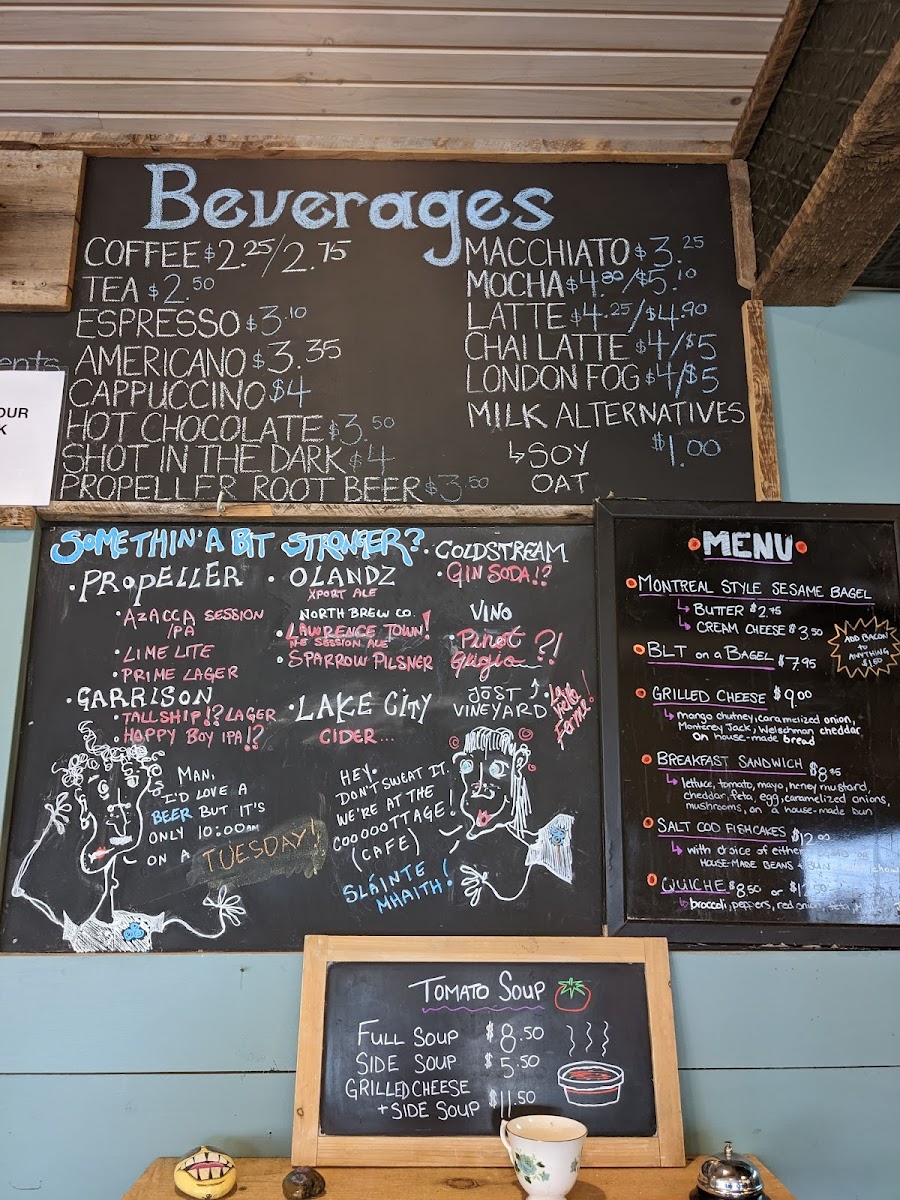 Beverages
COFFEE $2.25/2.75
TEA $2.50
ESPRESSO $3.10
AMERICANO $3.35
CAPPUCCINO $4
HOT CHOCOLATE $3.50
SHOT IN THE DARK $4
PROPELLER ROOT BEER $3.50
MACCHIATO $3.25
MOCHA $4.80/$5.10
LATTE $4.25/$4.90
CHAI LATTE $4/$5
LONDON FOG $4/$5
MILK ALTERNATIVES
$1.00
↳SOY
OAT
ents
OUR
K
SOMETHIN' A BIT STRONGER?
• PROPELLER
• AZACCA SESSION
IPA
• LIME LITE
• PRIME LAGER
• GARRISON
• TALL SHIP!? LAGER
• HOPPY BOY IPA!?
• OLANDZ
XPORT ALE
NORTH BREW CO.
• LAWRENCE TOWN!
N-E SESSION ALE
• SPARROW PILSNER
• LAKE CITY
CIDER...
• COLDSTREAM
• GIN SODA!?
VINO
• Pinot ?!
Gugio
JOST
VINEYARD
MAN,
I'D LOVE A
BEER BUT IT'S
ONLY 10:00AM
ON A TUESDAY!
HEY.
DON'T SWEAT IT.
WE'RE AT THE
COOOOOTTAGE!
(CAFE)
SLÁINTE
MHAITH!
• MENU •
• MONTREAL STYLE SESAME BAGEL
↳ BUTTER $2.75
↳ CREAM CHEESE $3.50
• BLT on a BAGEL $7.95
ADD BACON
to
ANYTHING
$1.50
• GRILLED CHEESE $9.00
↳ mango chutney, caramelized onion,
Monterey Jack, Welschman cheddar
on house-made bread
• BREAKFAST SANDWICH $8.95
↳ lettuce, tomato, mayo, honey mustard,
cheddar, feta, egg, caramelized onions,
mushrooms, on a house-made bun
• SALT COD FISHCAKES $12.00
↳ with choice of either
HOUSE-MADE BEANS
• QUICHE $8.50 or
↳ broccoli, peppers, red onion, feta,
TOMATO SOUP
FULL SOUP $8.50
SIDE SOUP $5.50
GRILLED CHEESE
+ SIDE SOUP $11.50